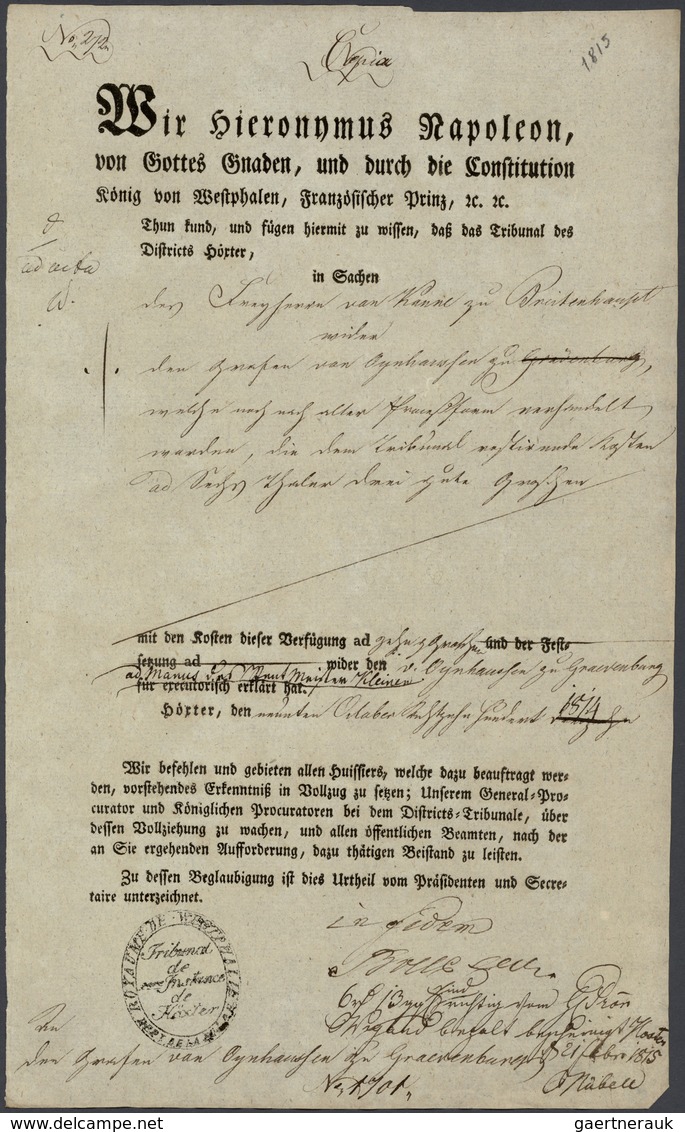 No. 212
Copia
1815
Wir Hieronymus Napoleon,
von Gottes Gnaden, und durch die Constitution
König von Westphalen, Französischer Prinz, ꝛc. ꝛc.
Thun kund, und fügen hiermit zu wissen, daß das Tribunal des
Districts Höxter,
ad acta
in Sachen
des Freyherrn von Kanne zu Breitenhaupt
wider
den Grafen von Oynhaussen zu Grevenburg,
welche noch nach alter Proceßform verhandelt
worden, die dem Tribunal restirende Kosten
ad Sechs Thaler drei gute Groschen
mit den Kosten dieser Verfügung ad zehn g Groschen und der Fest-
setzung ad wider den v. Oynhaussen zu Graevenburg
ad Manus des Kleinen
für executorisch erklärt hat.
Höxter, den neunten October Achtzehn hundert 1814
Wir befehlen und gebieten allen Huissiers, welche dazu beauftragt wer-
den, vorstehendes Erkenntniß in Vollzug zu setzen; Unserem General-Pro-
curator und Königlichen Procuratoren bei dem Districts-Tribunale, über
dessen Vollziehung zu wachen, und allen öffentlichen Beamten, nach der
an Sie ergehenden Aufforderung, dazu thätigen Beistand zu leisten.
Zu dessen Beglaubigung ist dies Urtheil vom Präsidenten und Secre-
taire unterzeichnet.
in fidem
ROYAUME DE WESTPHALIE
Tribunal
de
Instance
de
Höxter
Wigand bezahlt bescheinigt Höxter
An
den Grafen von Oynhaussen zu Graevenburg
21 1815
No. 1701.
gaertnerauk